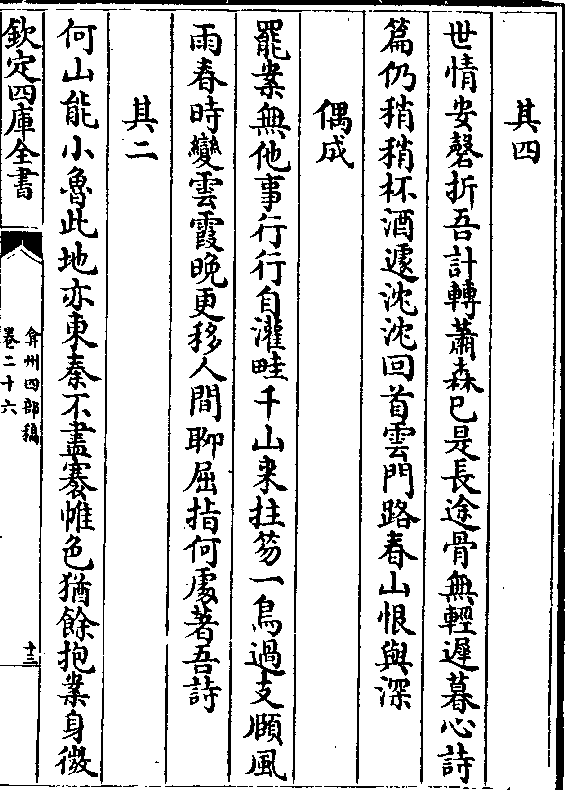 其四
世情安磬折吾計轉蕭森已是長途骨無輕遲暮心詩
篇仍稍稍杯酒遽沈沈回首雲門路春山恨與深
偶成
罷業無他事行行自灌畦千山来拄笏一鳥過支頥風
雨春時變雲霞晚更移人間聊屈指何處著吾詩
其二
何山能小魯此地亦東秦不盡褰帷色猶餘抱業身微
欽定四庫全書
弇州四部稿
卷二十六
十三